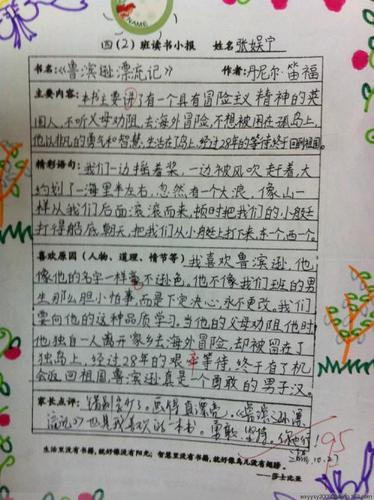 四(2)班读书小报 姓名 张娱宁
书名:《鲁滨逊漂流记》 作者:丹尼尔·笛福
主要内容:本书主要讲了有一个具有冒险主义精神的英
国人,不听父母劝阻,去海外冒险,不想被困在孤岛上,
他以非凡的勇气和智慧,生活在了岛上,经过28年的等待,终于回到祖国。
精彩语句:我们一边摇着桨,一边被风吹赶着,大
约划了一海里半左右,忽然有一个大浪,像山一
样从我们后面滚滚而来,顿时把我们的小艇
打得船底朝天,把我们从小艇上打下来,东一个,西一个。
喜欢原因(人物、道理、情节等)我喜欢鲁滨逊,他
像他的名字一样毫不逊色。他不像我们班的男
生那么胆小怕事,而是下定决心,永不更改。我们
要向他的这种品质学习。当他的父母劝阻他时,
他独自一人离开家乡去海外冒险,却被留在了
孤岛上,经过28年的艰辛等待,终于有了机
会返回祖国,鲁滨逊真是一个勇敢的男子汉。
家长点评:
画得真漂亮。《鲁滨逊漂
流记》也是我喜欢的一本书。勇敢、坚持,
95
10.27
生活里没有书籍,就好像没有阳光;智慧里没有书籍,就好像鸟儿没有翅膀。
——莎士比亚